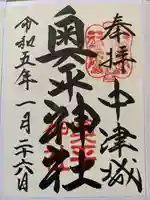 奉拝 中津城
奥平神社
令和五年一月二十六日